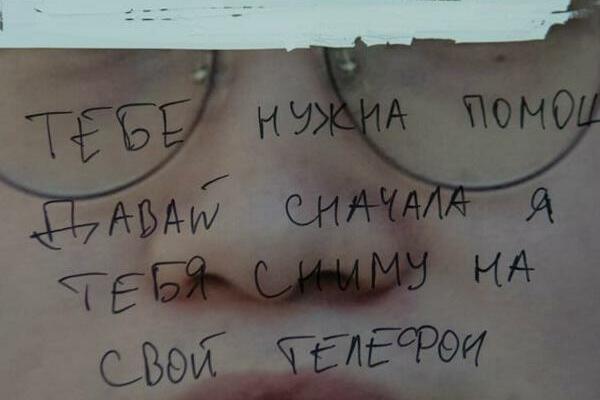 ТЕБЕ НУЖНА ПОМОЩ
ДАВАЙ СНАЧАЛА Я
ТЕБЯ СНИМУ НА
СВОЙ ТЕЛЕФОН